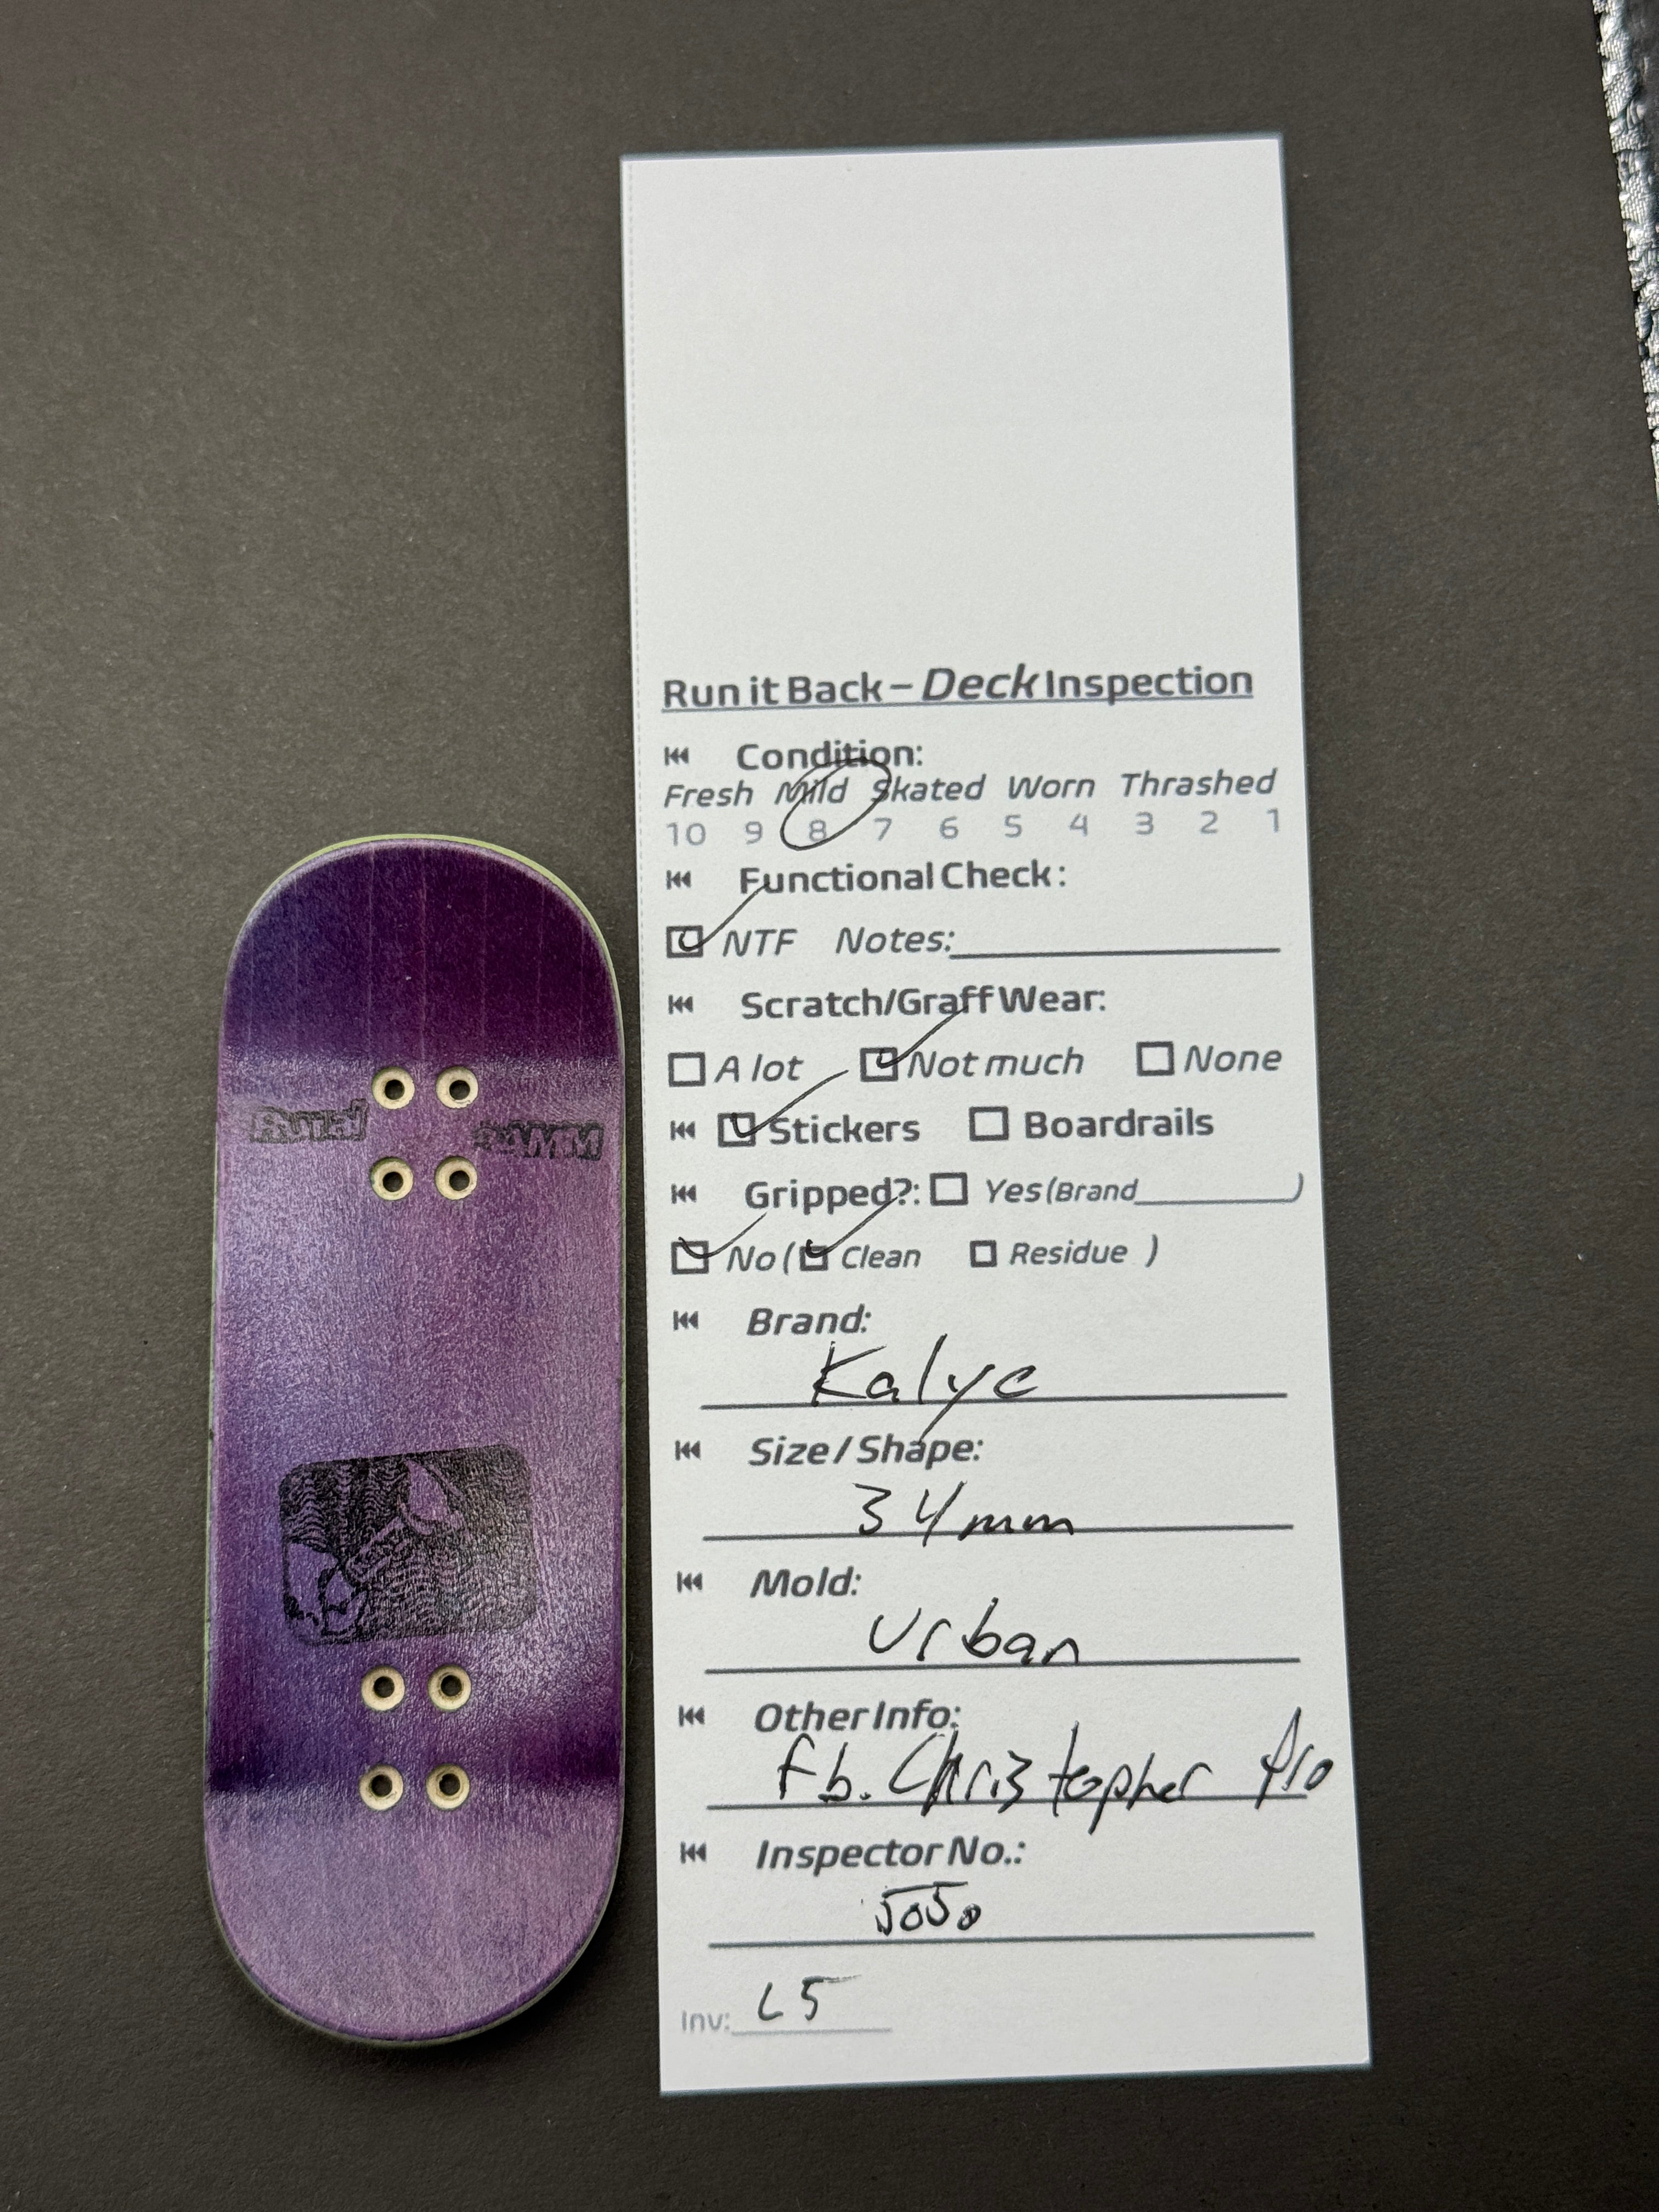 Run it Back – Deck Inspection
Condition:
Fresh Mild Skated Worn Thrashed
10 9 8 7 6 5 4 3 2 1
Functional Check:
NTF Notes:
Scratch/Graff Wear:
A lot Not much None
Stickers Boardrails
Gripped?: Yes (Brand )
No ( Clean Residue )
Brand:
Kalye
Size / Shape:
34mm
Mold:
Urban
Other Info:
fb. Christopher Pro
Inspector No.:
5050
Inv: L5
Rural
34MM